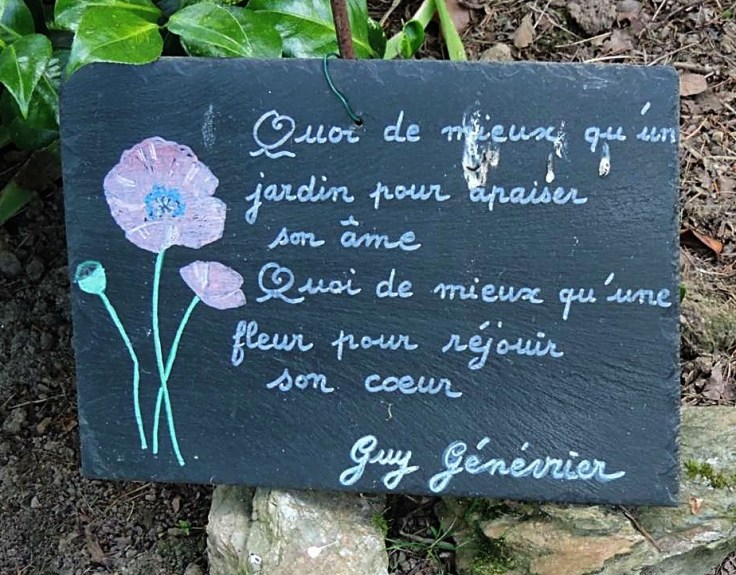 Quoi de mieux qu'un
jardin pour apaiser
son âme
Quoi de mieux qu'une
fleur pour réjouir
son coeur
Guy Génévrier